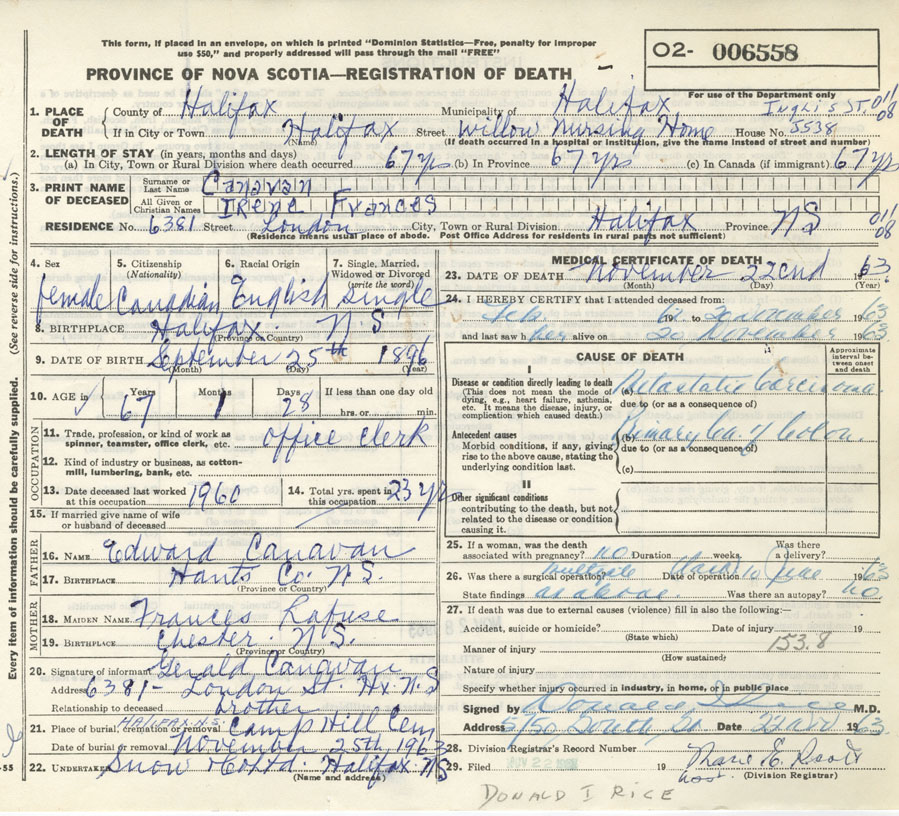 This form, if placed in an envelope, on which is printed "Dominion Statistics—Free, penalty for improper
use $50," and properly addressed will pass through the mail "FREE"
O2- 006558
PROVINCE OF NOVA SCOTIA—REGISTRATION OF DEATH
For use of the Department only
1. PLACE OF DEATH County of Halifax Municipality of Halifax Inglis St. 01/08
If in City or Town Halifax (Name) Street Willow Nursing Home House No. 5538
(If death occurred in a hospital or institution, give the name instead of street and number)
2. LENGTH OF STAY (in years, months and days)
(a) In City, Town or Rural Division where death occurred 67 yrs (b) In Province 67 yrs (c) In Canada (if immigrant) 67 yrs
3. PRINT NAME OF DECEASED Surname or Last Name Canavan
All Given or Christian Names Irene Frances
RESIDENCE No. 6381 Street London City, Town or Rural Division Halifax Province NS 01/08
(Residence means usual place of abode. Post Office Address for residents in rural parts not sufficient)
4. Sex female
5. Citizenship (Nationality) Canadian
6. Racial Origin English
7. Single, Married, Widowed or Divorced (write the word) Single
8. BIRTHPLACE Halifax N S
(Province or Country)
9. DATE OF BIRTH September 25th 1896
(Month) (Day) (Year)
10. AGE in Years 67 Months 1 Days 28 If less than one day old
hrs. or min.
OCCUPATION
11. Trade, profession, or kind of work as spinner, teamster, office clerk, etc. office clerk
12. Kind of industry or business, as cotton-mill, lumbering, bank, etc.
13. Date deceased last worked at this occupation 1960
14. Total yrs. spent in this occupation 23 yrs
15. If married give name of wife or husband of deceased
FATHER
16. NAME Edward Canavan
17. BIRTHPLACE Hants Co. N.S.
(Province or Country)
MOTHER
18. MAIDEN NAME Frances Rafuse
19. BIRTHPLACE Chester N.S.
(Province or Country)
20. Signature of informant Gerald Canavan
Address 6381- London St. Hx. N.S
Relationship to deceased brother
21. Place of burial, cremation or removal HALIFAX N.S. Camp Hill Cem
Date of burial or removal November 25th, 1963
22. UNDERTAKER Snow & Co Ltd. Halifax NS
(Name and address)
MEDICAL CERTIFICATE OF DEATH
23. DATE OF DEATH November 22nd 1963
(Month) (Day) (Year)
24. I HEREBY CERTIFY that I attended deceased from:
Feb. 19 to 1963
and last saw her alive on 20 November 1963
CAUSE OF DEATH
Approximate interval between onset and death
I
Disease or condition directly leading to death
(This does not mean the mode of dying, e.g., heart failure, asthenia, etc. It means the disease, injury, or complication which caused death.)
(a) Metastatic Carcinoma
due to (or as a consequence of)
Antecedent causes
Morbid conditions, if any, giving rise to the above cause, stating the underlying condition last.
(b) Primary Ca of Colon.
due to (or as a consequence of)
(c)
II
Other significant conditions
contributing to the death, but not related to the disease or condition causing it.
25. If a woman, was the death associated with pregnancy? no Duration weeks. Was there a delivery?
26. Was there a surgical operation? Date of operation 10 June 1963
State findings as above. Was there an autopsy? no
27. If death was due to external causes (violence) fill in also the following:—
Accident, suicide or homicide? Date of injury 19
(State which)
Manner of injury 153.8
(How sustained)
Nature of injury
Specify whether injury occurred in industry, in home, or in public place
Signed by Donald I Rice M.D.
Address 5150 South St. Date 22 Nov 1963
28. Division Registrar's Record Number
29. Filed 19
(Division Registrar)
DONALD I RICE
Every item of information should be carefully supplied. (See reverse side for instructions.)
-55